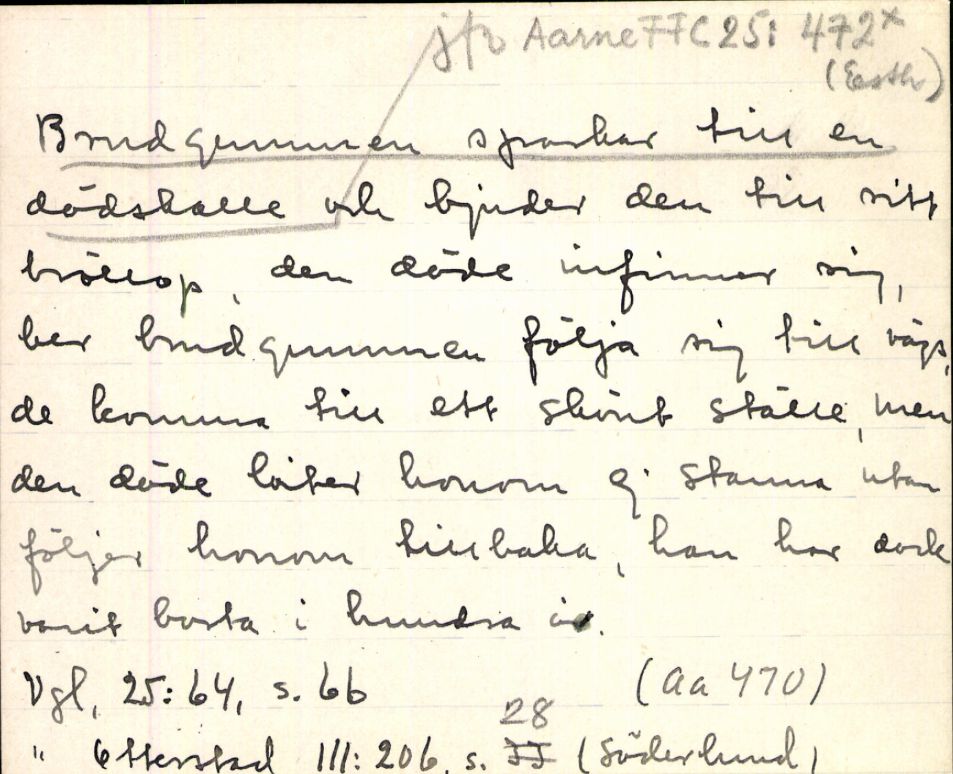 jfr Aarne FFC 25: 472*
(Esth)
Brudgummen sparkar till en
dödskalle och bjuder den till sitt
bröllop, den döde infinner sig,
ber brudgummen följa sig till vägs,
de komma till ett skönt ställe, men
den döde låter honom ej stanna utan
följer honom tillbaka, han har dock
varit borta i hundra år.
Vgl, 25: 64, s. 66 (Aa 470)
28
" Etterstad III: 206, s. (Söderlund)